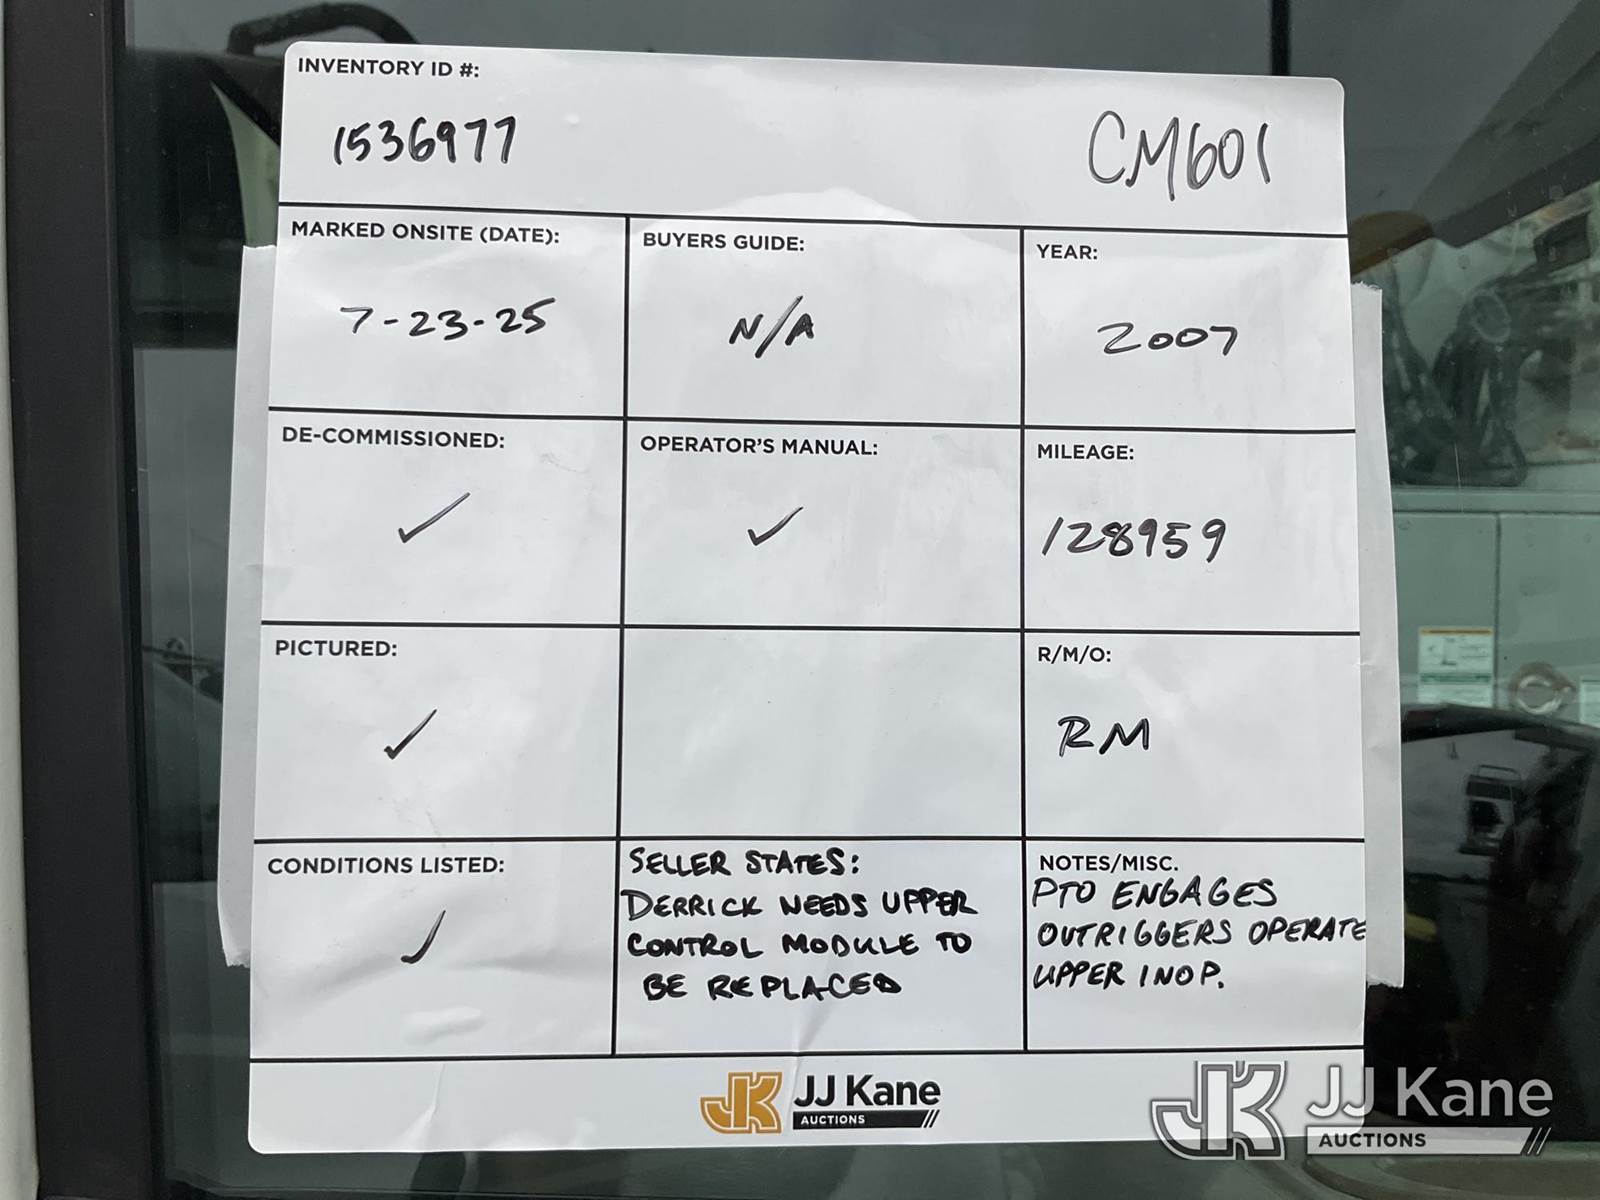 INVENTORY ID #:
1536977
CM601
MARKED ONSITE (DATE):
7-23-25
BUYERS GUIDE:
N/A
YEAR:
2007
DE-COMMISSIONED:
✓
OPERATOR'S MANUAL:
✓
MILEAGE:
128959
PICTURED:
✓
R/M/O:
RM
CONDITIONS LISTED:
✓
SELLER STATES:
DERRICK NEEDS UPPER
CONTROL MODULE TO
BE REPLACED
NOTES/MISC.
PTO ENGAGES
OUTRIGGERS OPERATE
UPPER INOP.
JK JJ Kane
AUCTIONS
JK JJ Kane
AUCTIONS